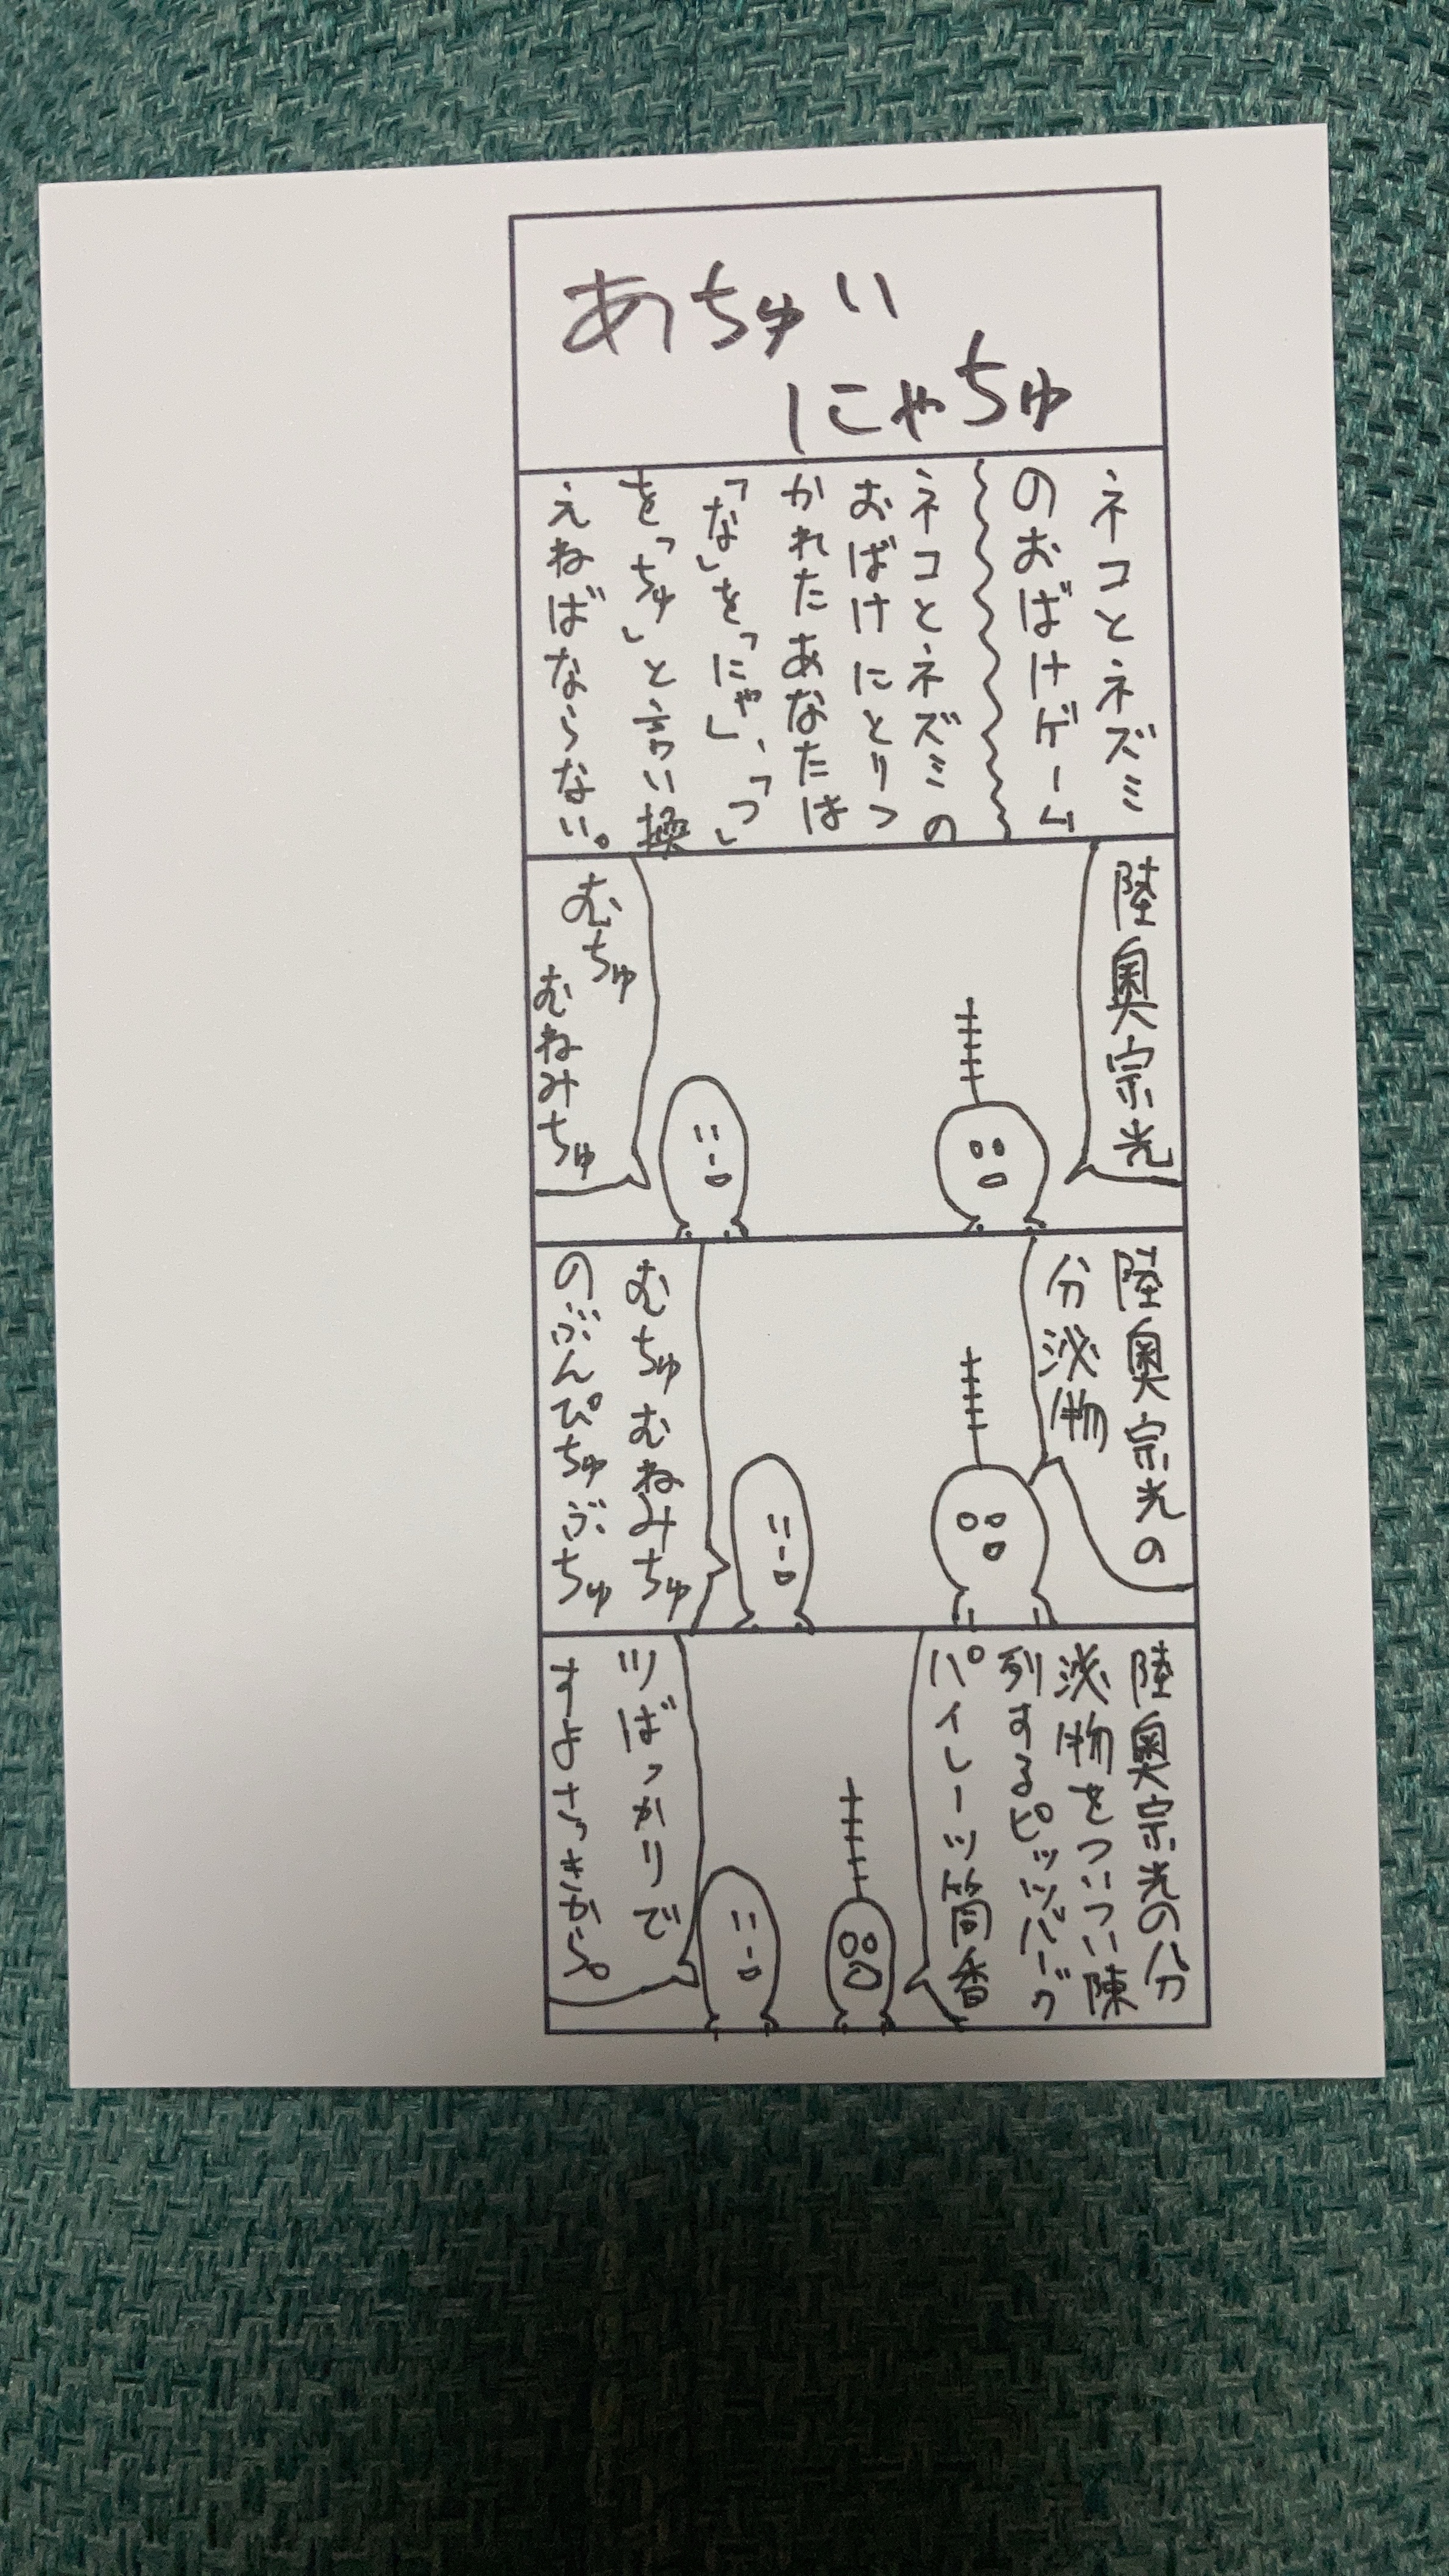 あちゅい
にゃちゅ
ネコとネズミ
のおばけゲーム
ネコとネズミの
おばけにとりつ
かれたあなたは
「な」を「にゃ」、「つ」
を「ちゅ」と言い換
えねばならない。
陸奥宗光
むちゅ
むねみちゅ
陸奥宗光の
分泌物
むちゅむねみちゅ
のぶんぴちゅぶちゅ
陸奥宗光の分
泌物をついつい陳
列するピッツバーグ
パイレーツ筒香
ツばっかりで
すよさっきから。